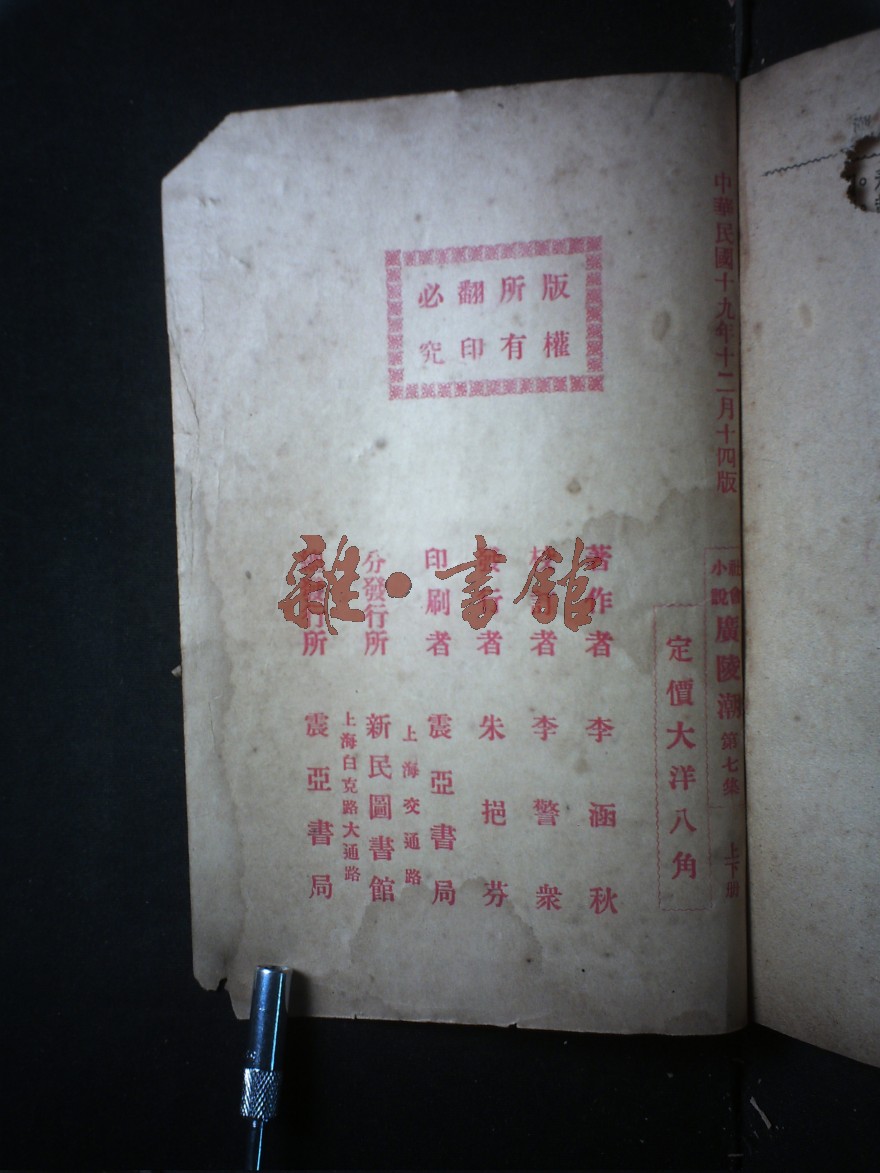 中華民國十九年十二月十四版
社會小說 廣陵潮 第七集 上下册
定價大洋八角
版權所有
翻印必究
著作者 李涵秋
者 李警衆
行者 朱挹芬
印刷者 震亞書局
上海交通路
分發行所 新民圖書館
上海白克路大通路
行所 震亞書局
雜·書館